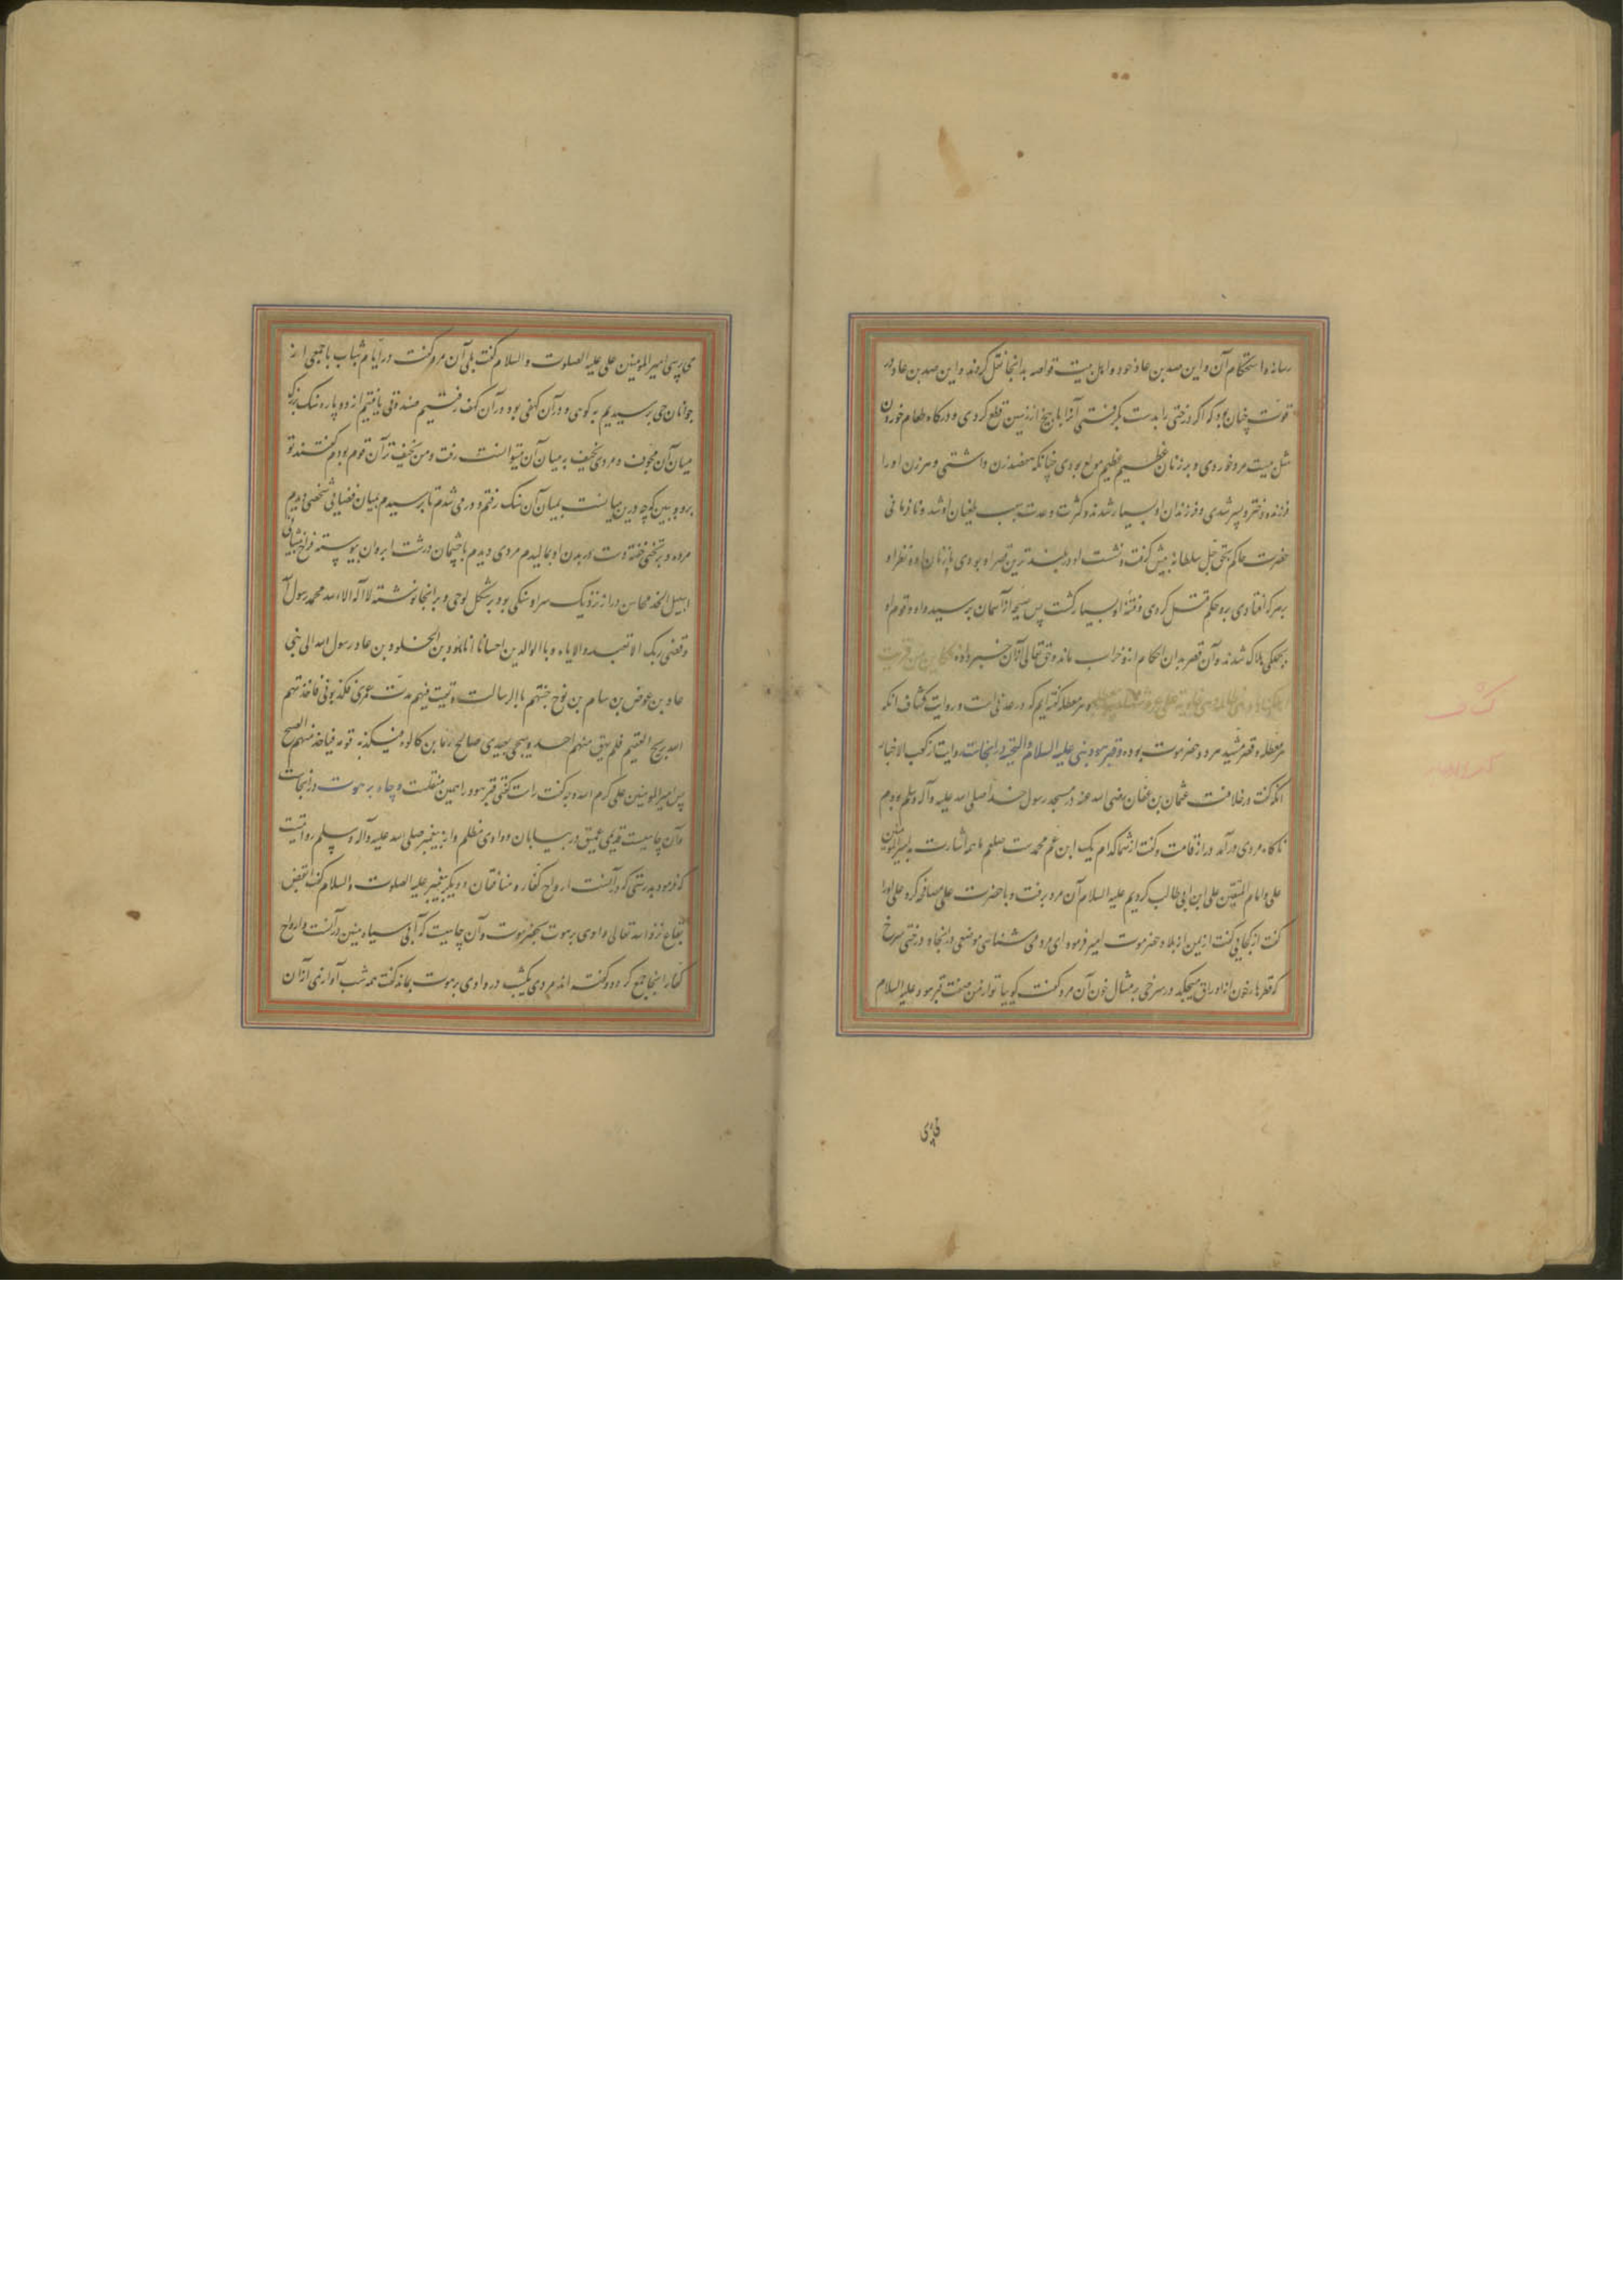 رسانه و استحکام آن و این صد بن عاد خود و اهل بیت و خاصه بدانجا نقل کردند و این صد بن عاد در
قوت چنان بود که اگر درختی را بدست بگرفتی آنرا با بیخ از زمین قطع کردی و در کاه طعام خوردن
مثل بیست مرد خوردی و بر زنان عظیم عظیم مولع بودی چنانکه هفصد زن داشتی و هر زن او را
فرزند دختر و پسر شدی و فرزندان او بسیار شدند و کثرت وعدت سبب طغیان او شد و نافرمانی
حضرت حاکم بحق جل سلطانه پیش گرفت و نشست او در بلند ترین قصر او بودی با زنان او و نظر او
بر هر که افتادی بدو حکم قتل کردی و فتنهٔ او بسیار گشت پس صیحه از آسمان برسید و او و قوم او
بجملگی هلاک شدند و آن قصر بدان احکام اندوخراب ماند و حق تعالی از آن خبر داده فکاین من قریة
اهلکناها وهی ظالمة فهی خاویة علی عروشها وبئر معطله گفته‌ایم که در عدنی است و روایت کشاف انکه
بئر معطله و قصر مشید هر دو بحضرموت بوده و قبر هود نبی علیه السلام والتحیه در انجاست روایت از کعب الاخبار
انکه گفت در خلافت عثمان بن عفان رضی الله عنه در مسجد رسول خدا صلی الله علیه وآله وسلم بودم
ناکاه مردی درآمد دراز قامت و گفت از شما کدام یک ابن عم محمدست صلعم ما همه اشارت به امیرالمومنین
علی و امام المتقین علی ابن ابی طالب کردیم علیه السلام آن مرد برفت و با حضرت علی مصافحه کرد علی او را
گفت از کجایی گفت از یمن از بلاد حضرموت امیر فرمود ای مرد می شناسی موضعی در انجا و درختی سرخ
که قطرها خون از اوراق میچکد در سرخی بر مثال خون آن مرد گفت کوییا تو از من صفت قبر هود علیه السلام
کشاف
کعب الاخبار
می پرسی امیر المومنین علی علیه الصلوت و السلام گفت بلی آن مرد گفت در ایام شباب با جمعی از
جوانان حی برسیدیم به کوهی و در آن کهفی بود در آن کهف رفتیم صندوقی یافتیم از دو پاره سنک بزرک
میان آن مجوف و مردی نحیف به میان آن میتوانست رفت و من نحیف تر آن قوم بودم گفتند تو
برو و ببین که چه درین میانست بمیان آن سنک رفتم و در می شدم تا برسیدم بمیان فضایی شخصی دیدم
مرده و بر تختی خفته دست در بدن او بمالیدم مردی دیدم با چشمان درشت ابروان پیوسته فراخ پیشانی
اسیل الخد محاسن دراز نزدیک سر او سنکی بود بر شکل لوحی و بر انجا نوشته لا اله الا الله محمد رسول الله
وقضی ربک الا تعبدوا الا ایاه وبا الوالدین احسانا انا هود بن الخلود بن عاد رسول الله الی بنی
عاد بن عوض بن سام بن نوح جئتهم باالرسالت وبقیت فیهم مدت عمری فکذبونی فاخذتهم
الله بریح العقیم فلم یبق منهم احد وسیجی بعدی صالح بن کالوه فیکذبه قومه فیاخذ منهم الصیح
پس امیر المومنین علی کرم الله وجه گفت راست گفتی قبر هود را همین صفتست و چاه برهوت در انجاست
و آن چاهیست قدیمی عمیق در بیابان و وادی مظلم و از پیغمبر صلی الله علیه وآله وسلم روایتیست
که فرمود بدرستی که در آنست ارواح کفار و منافقان و دیگر پیغمبر علیه الصلوت و السلام گفت ابغض
بقاع نزد الله تعالی وادی برهوت بحضرموت و آن چاهیست که آبی سیاه منتن در آنست و ارواح
کفار انجا جمع کردد و گفته اند مردی یکشب در وادی برهوت بماند گفت همه شب آوازی از آن